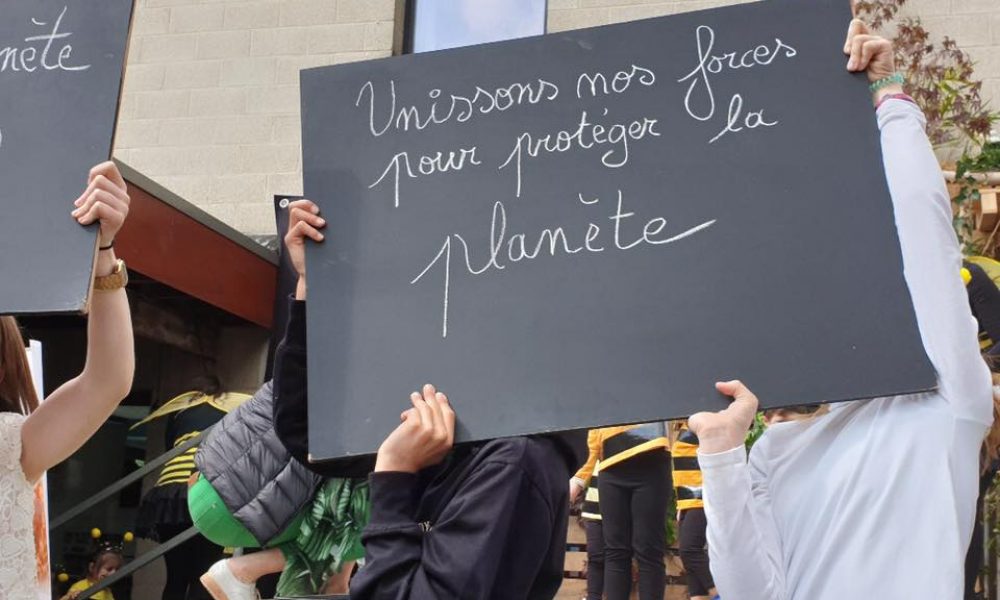 nète
Unissons nos forces
pour protéger la
planète